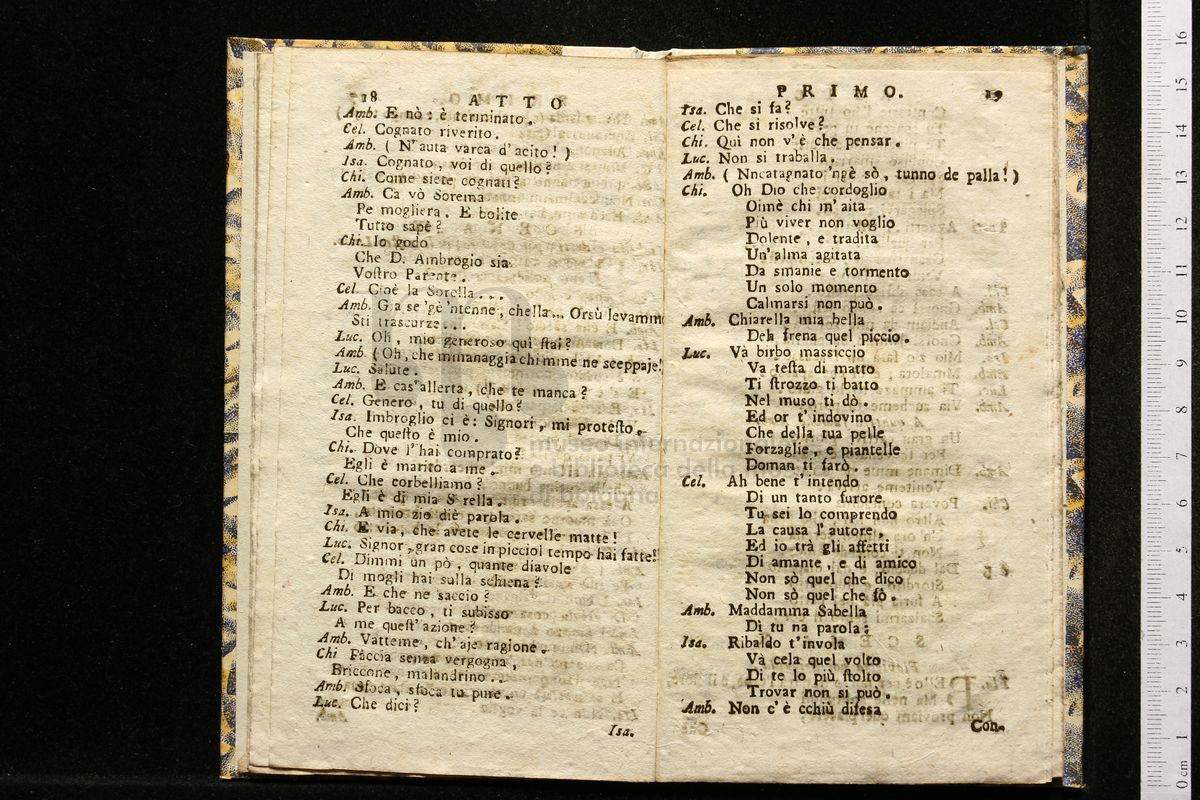 18 ATTO
(Amb. E nò: è terminato.
Cel. Cognato riverito.
Amb. ( N'auta varca d'acito! )
Isa. Cognato, voi di quello?
Chi. Come siete cognati?
Amb. Ca vò Sorema
Pe mogliera. E bolite
Tutto sapè?
Chi. Io godo
Che D. Ambrogio sia
Vostro Parente.
Cel. Cioè la Sorella...
Amb. Gia se 'gè 'ntenne, chella... Orsù levamm
Sti trascurze...
Luc. Oh, mio generoso quì stai?
Amb. (Oh, che mmanaggia chi mme ne sceppaje!
Luc. Salute.
Amb. E cas' allerta, che te manca?
Cel. Genero, tu di quello?
Isa. Imbroglio ci è: Signori, mi protesto,
Che questo è mio.
Chi. Dove l'hai comprato?
Egli è marito a me.
Cel. Che corbelliamo?
Egli è di mia S rella.
Isa. A mio zio diè parola.
Chi. E via, che avete le cervelle matte!
Luc. Signor, gran cose in picciol tempo hai fatte!
Cel. Dimmi un pò, quante diavole
Di mogli hai sulla schiena?
Amb. E che ne saccio?
Luc. Per bacco, ti subisso
A me quest' azione?
Amb. Vatteme, ch'aje ragione.
Chi Faccia senza vergogna,
Briccone, malandrino..
Amb. Sfoca, sfoca tu pure.
Luc. Che dici?
Isa.
PRIMO. 19
Isa. Che si fa?
Cel. Che si risolve?
Chi. Quì non v'è che pensar.
Luc. Non si traballa.
Amb. ( Nncatagnato 'ngè sò, tunno de palla!)
Chi. Oh Dio che cordoglio
Oimè chi m' aita
Più viver non voglio
Dolente, e tradita
Un' alma agitata
Da smanie e tormento
Un solo momento
Calmarsi non può.
Amb. Chiarella mia bella
Deh frena quel piccio.
Luc. Và birbo massiccio
Va testa di matto
Ti strozzo ti batto
Nel muso ti dò.
Ed or t' indovino
Che della tua pelle
Forzaglie, e piantelle
Doman ti farò.
Cel. Ah bene t' intendo
Di un tanto furore
Tu sei lo comprendo
La causa l' autore,
Ed io trà gli affetti
Di amante, e di amico
Non sò quel che dico
Non sò quel che fò.
Amb. Maddamma Sabella
Dì tu na parola:
Isa. Ribaldo t'invola
Và cela quel volto
Di te lo più stolto
Trovar non si può.
Amb. Non c' è cchiù difesa
Con-
museo internazionale
e biblioteca della
di bologna
0 cm 1 2 3 4 5 6 7 8 9 10 11 12 13 14 15 16